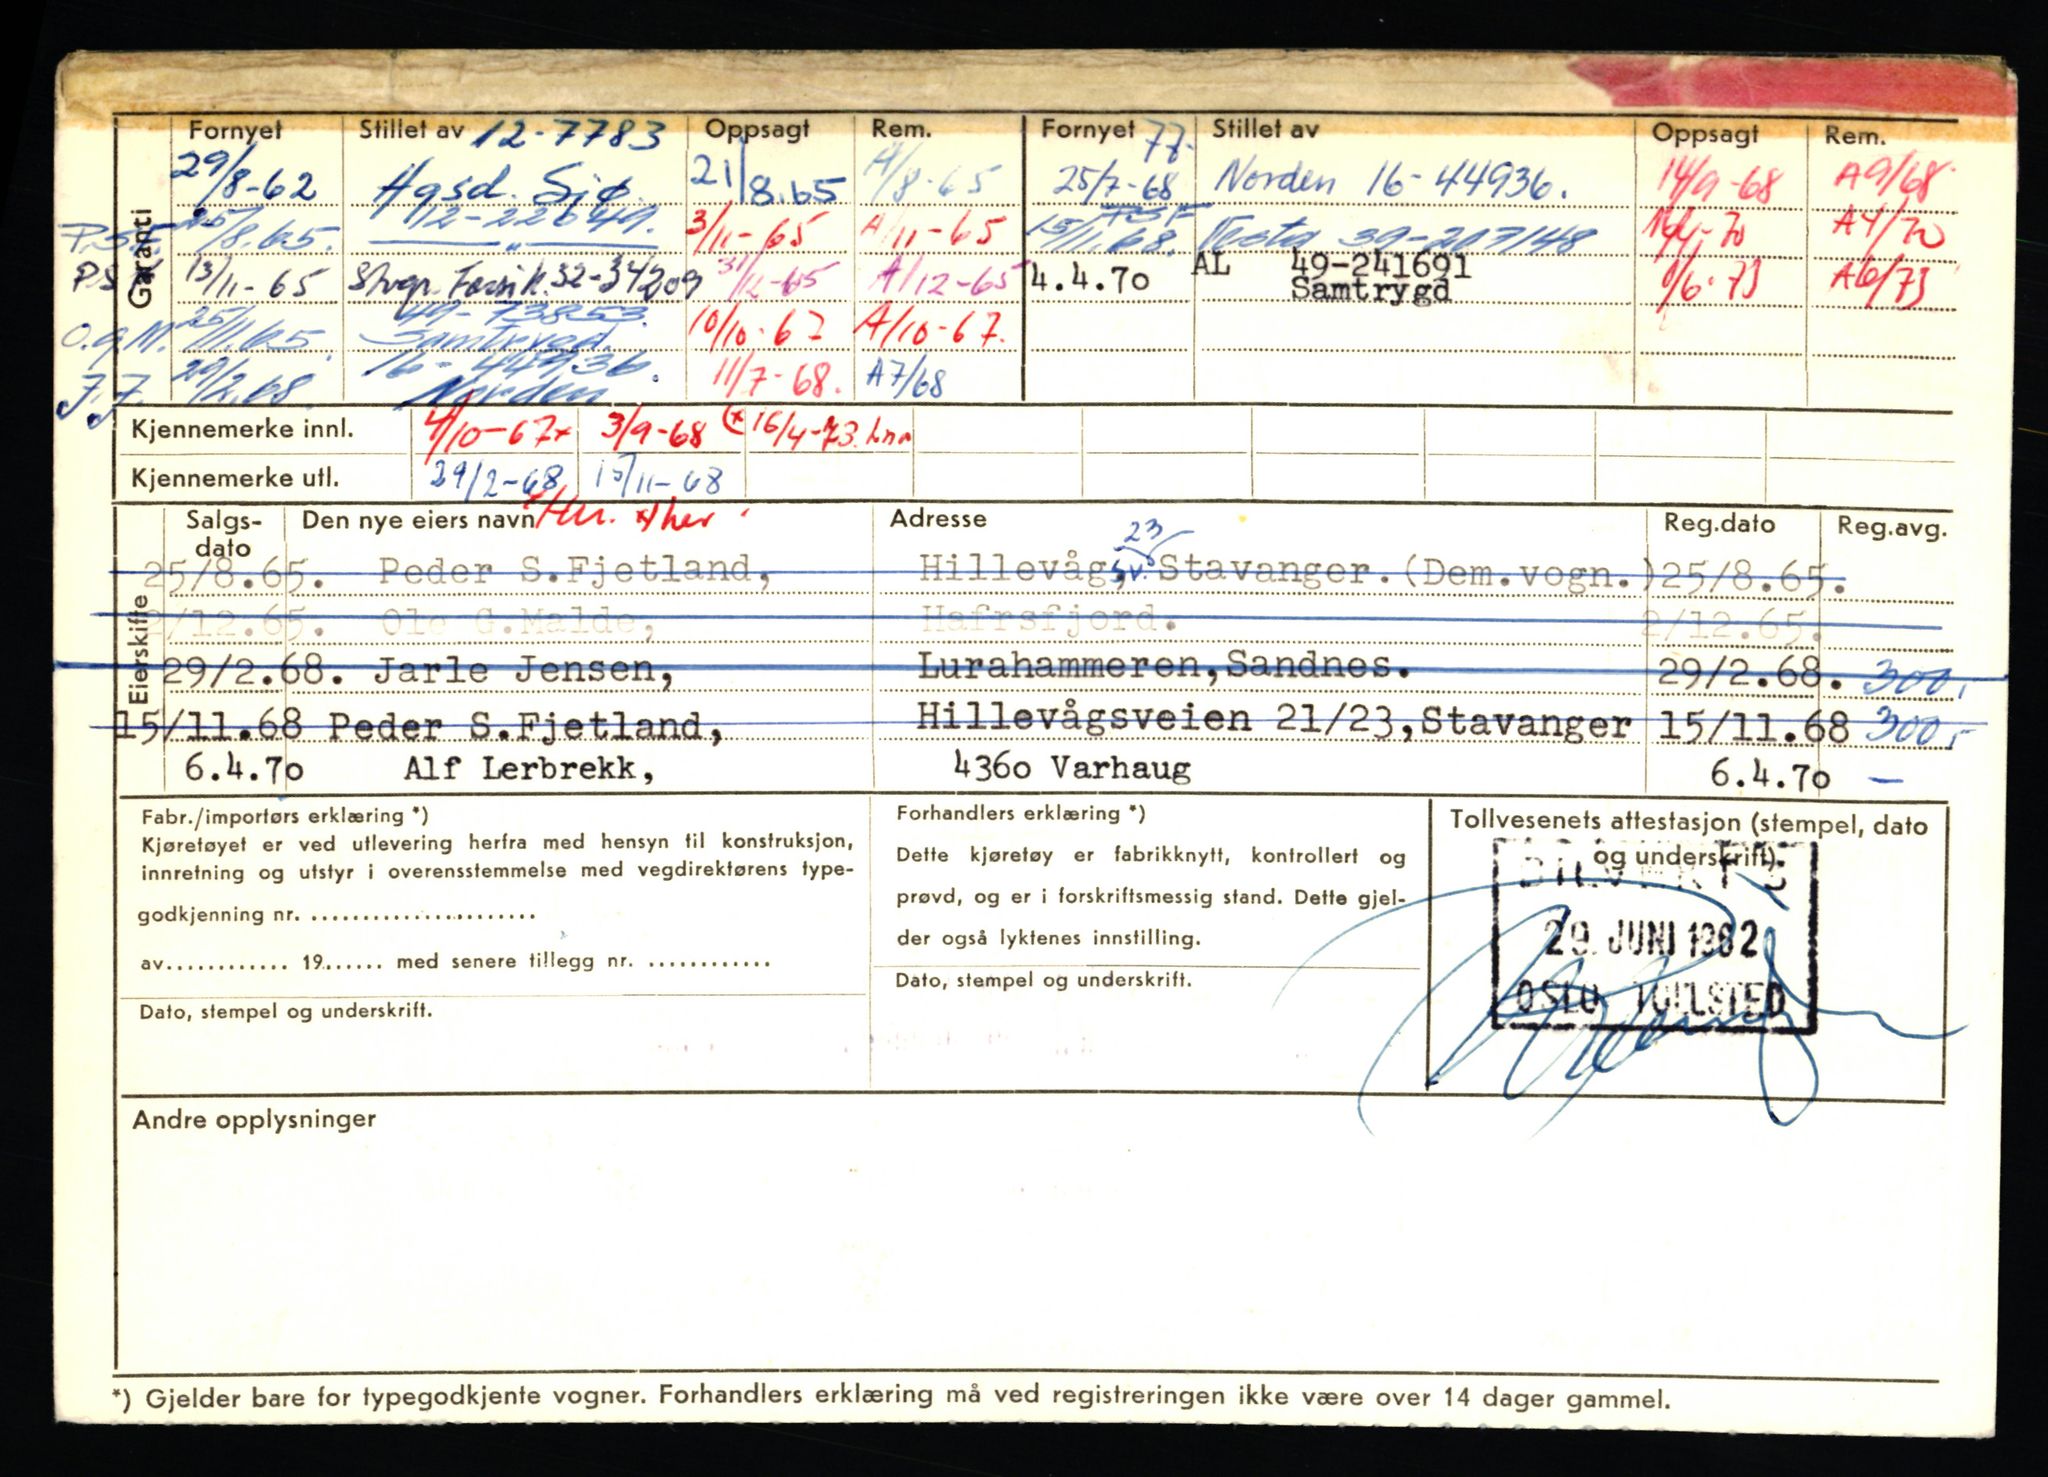 Garanti
Fornyet Stillet av 12-7783 Oppsagt Rem. Fornyet Stillet av Oppsagt Rem.
29/8-62 Hgsd. Sjø. 21/8.65 A/8-65 25/7-68 Norden 16-44936. 14/9-68 A9/68
P.S.F. 25/8.65. 12-22649. 3/11-65 A/11-65 15/11.68. Vesta 39-207148 A4/70
P.S.F. 13/11-65 Stvgr. Forsik. 32-34209 31/12-65 A/12-65 4.4.70 AL 49-241691 Samtrygd 1/6-73 A6/73
O.G.M. 25/11.65. 49-73853. Samtrygd. 10/10-67 A/10-67.
J.J. 29/2.68. 16-44936. Norden 11/7-68. A7/68
Kjennemerke innl. 4/10-67x 3/9-68 (x 16/4-73.
Kjennemerke utl. 29/2-68 15/11-68
Eierskifte
Salgs-dato Den nye eiers navn Adresse Reg.dato Reg.avg.
25/8.65. Peder S.Fjetland, Hillevåg,sv. 23 Stavanger.(Dem.vogn.) 25/8.65.
2/12.65. Ole G.Malde, Hafrsfjord. 2/12.65.
29/2.68. Jarle Jensen, Lurahammeren,Sandnes. 29/2.68. 300,
15/11.68 Peder S.Fjetland, Hillevågsveien 21/23,Stavanger 15/11.68 300,
6.4.70 Alf Lerbrekk, 4360 Varhaug 6.4.70 —
Fabr./importørs erklæring *)
Kjøretøyet er ved utlevering herfra med hensyn til konstruksjon,
innretning og utstyr i overensstemmelse med vegdirektørens type-
godkjenning nr. ......................
av............ 19...... med senere tillegg nr. ............
Dato, stempel og underskrift.
Forhandlers erklæring *)
Dette kjøretøy er fabrikknytt, kontrollert og
prøvd, og er i forskriftsmessig stand. Dette gjel-
der også lyktenes innstilling.
Dato, stempel og underskrift.
Tollvesenets attestasjon (stempel, dato
og underskrift)
29. JUNI 1962
OSLO TOLLSTED
Andre opplysninger
*) Gjelder bare for typegodkjente vogner. Forhandlers erklæring må ved registreringen ikke være over 14 dager gammel.